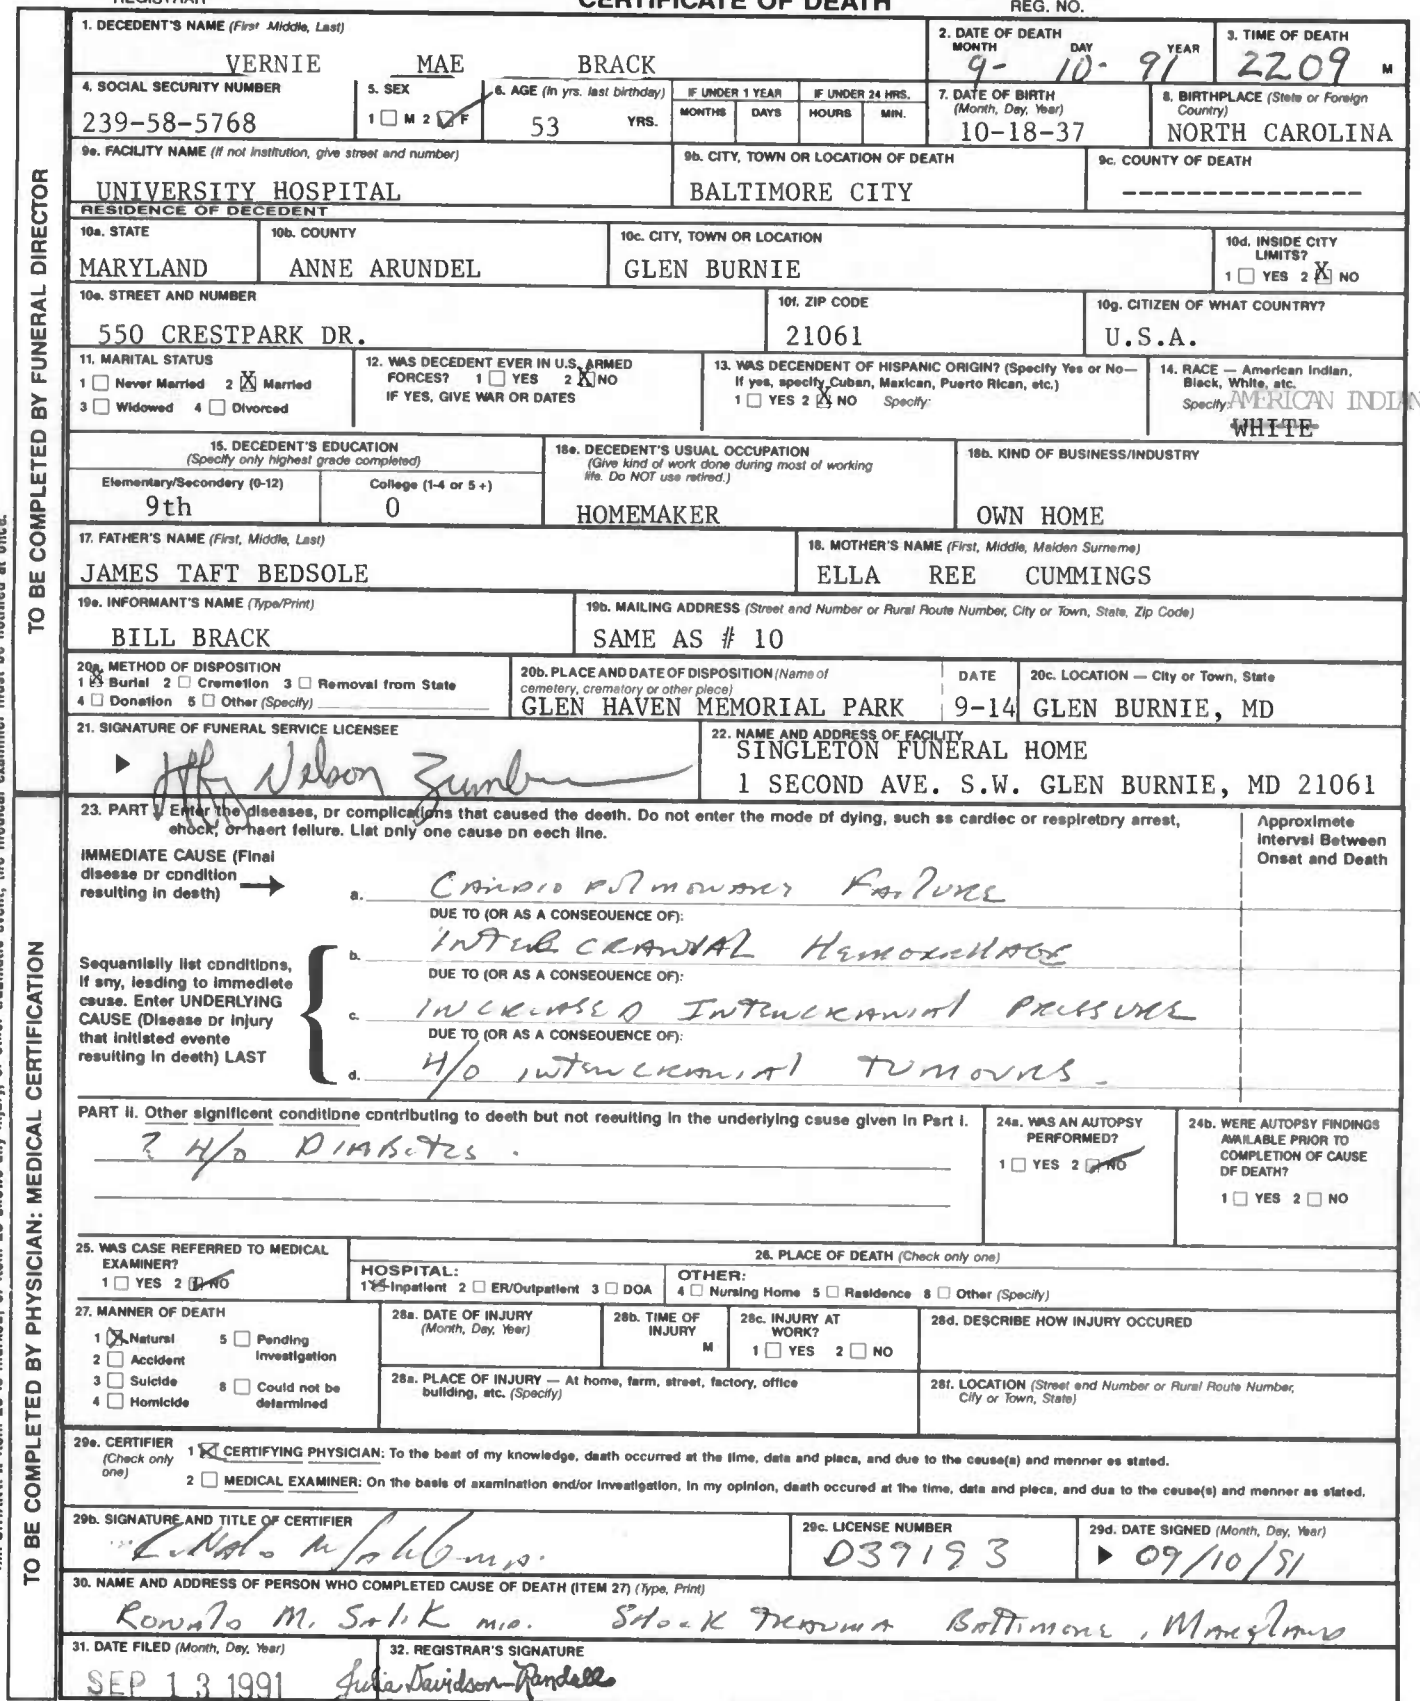 CERTIFICATE OF DEATH
REGISTRAR REG. NO.
TO BE COMPLETED BY FUNERAL DIRECTOR
1. DECEDENT'S NAME (First, Middle, Last)
VERNIE MAE BRACK
2. DATE OF DEATH
MONTH DAY YEAR
9- 10- 91
3. TIME OF DEATH
2209 M
4. SOCIAL SECURITY NUMBER
239-58-5768
5. SEX
1 M 2 F
6. AGE (In yrs. last birthday)
53 YRS.
IF UNDER 1 YEAR
MONTHS DAYS
IF UNDER 24 HRS.
HOURS MIN.
7. DATE OF BIRTH
(Month, Day, Year)
10-18-37
8. BIRTHPLACE (State or Foreign
Country)
NORTH CAROLINA
9a. FACILITY NAME (If not institution, give street and number)
UNIVERSITY HOSPITAL
9b. CITY, TOWN OR LOCATION OF DEATH
BALTIMORE CITY
9c. COUNTY OF DEATH
---------------
RESIDENCE OF DECEDENT
10a. STATE
MARYLAND
10b. COUNTY
ANNE ARUNDEL
10c. CITY, TOWN OR LOCATION
GLEN BURNIE
10d. INSIDE CITY
LIMITS?
1 YES 2 X NO
10e. STREET AND NUMBER
550 CRESTPARK DR.
10f. ZIP CODE
21061
10g. CITIZEN OF WHAT COUNTRY?
U.S.A.
11. MARITAL STATUS
1 Never Married 2 X Married
3 Widowed 4 Divorced
12. WAS DECEDENT EVER IN U.S. ARMED
FORCES? 1 YES 2 X NO
IF YES, GIVE WAR OR DATES
13. WAS DECENDENT OF HISPANIC ORIGIN? (Specify Yes or No—
If yes, specify Cuban, Maxican, Puerto Rican, etc.)
1 YES 2 X NO Specify:
14. RACE — American Indian,
Black, White, atc.
Specify: AMERICAN INDIAN
WHITE
15. DECEDENT'S EDUCATION
(Specify only highest grade completed)
Elementary/Secondery (0-12)
9th
College (1-4 or 5 +)
0
16a. DECEDENT'S USUAL OCCUPATION
(Give kind of work done during most of working
life. Do NOT use retired.)
HOMEMAKER
16b. KIND OF BUSINESS/INDUSTRY
OWN HOME
17. FATHER'S NAME (First, Middle, Last)
JAMES TAFT BEDSOLE
18. MOTHER'S NAME (First, Middle, Maiden Surname)
ELLA REE CUMMINGS
19a. INFORMANT'S NAME (Type/Print)
BILL BRACK
19b. MAILING ADDRESS (Street and Number or Rural Route Number, City or Town, State, Zip Code)
SAME AS # 10
20a. METHOD OF DISPOSITION
1 X Burial 2 Cremetion 3 Removal from State
4 Donation 5 Other (Specify)
20b. PLACE AND DATE OF DISPOSITION (Name of
cemetery, crematory or other place)
GLEN HAVEN MEMORIAL PARK
DATE
9-14
20c. LOCATION — City or Town, State
GLEN BURNIE, MD
21. SIGNATURE OF FUNERAL SERVICE LICENSEE
Nelson
22. NAME AND ADDRESS OF FACILITY
SINGLETON FUNERAL HOME
1 SECOND AVE. S.W. GLEN BURNIE, MD 21061
TO BE COMPLETED BY PHYSICIAN: MEDICAL CERTIFICATION
23. PART I. Enter the diseases, or complications that caused the deeth. Do not enter the mode of dying, such as cardiec or respiretory arrest,
shock, or haert feilure. List only one cause on eech line.
Approximete
Interval Between
Onsat and Death
IMMEDIATE CAUSE (Final
disease or condition
resulting in death)
a. CARDIO PULMONARY FAILURE
DUE TO (OR AS A CONSEQUENCE OF):
b. INTER CRANIAL HEMORRHAGE
DUE TO (OR AS A CONSEQUENCE OF):
c. INCREASED INTERCRANIAL PRESSURE
DUE TO (OR AS A CONSEQUENCE OF):
d. H/O INTERCRANIAL TUMOURS.
Sequantially list conditions,
if any, leading to immediete
cause. Enter UNDERLYING
CAUSE (Disease or injury
that initiated evente
resulting in deeth) LAST
PART II. Other significent conditione contributing to deeth but not reeulting in the underlying cause given in Part I.
? H/O DIABETES.
24a. WAS AN AUTOPSY
PERFORMED?
1 YES 2 NO
24b. WERE AUTOPSY FINDINGS
AVAILABLE PRIOR TO
COMPLETION OF CAUSE
OF DEATH?
1 YES 2 NO
25. WAS CASE REFERRED TO MEDICAL
EXAMINER?
1 YES 2 NO
26. PLACE OF DEATH (Check only one)
HOSPITAL:
1 X Inpatient 2 ER/Outpatient 3 DOA
OTHER:
4 Nursing Home 5 Rasidence 6 Other (Specify)
27. MANNER OF DEATH
1 X Natural 5 Pending
Investigation
2 Accident
3 Suicide 6 Could not be
determined
4 Homicide
28a. DATE OF INJURY
(Month, Day, Year)
28b. TIME OF
INJURY
M
28c. INJURY AT
WORK?
1 YES 2 NO
28d. DESCRIBE HOW INJURY OCCURED
28e. PLACE OF INJURY — At home, farm, street, factory, office
building, atc. (Specify)
28f. LOCATION (Street and Number or Rural Route Number,
City or Town, State)
29a. CERTIFIER
(Check only
one)
1 X CERTIFYING PHYSICIAN: To the beat of my knowledge, death occurred at the time, data and placa, and due to the ceuse(a) and menner es stated.
2 MEDICAL EXAMINER: On the basis of axamination end/or Investigation, in my opinion, daath occured at the time, data and pleca, and dua to the ceuse(s) and menner as stated.
29b. SIGNATURE AND TITLE OF CERTIFIER
29c. LICENSE NUMBER
D39193
29d. DATE SIGNED (Month, Day, Year)
09/10/91
30. NAME AND ADDRESS OF PERSON WHO COMPLETED CAUSE OF DEATH (ITEM 27) (Type, Print)
Ronald M. Salik M.D. Shock Trauma Baltimore, Maryland
31. DATE FILED (Month, Day, Year)
SEP 13 1991
32. REGISTRAR'S SIGNATURE
Julia Davidson-Randall